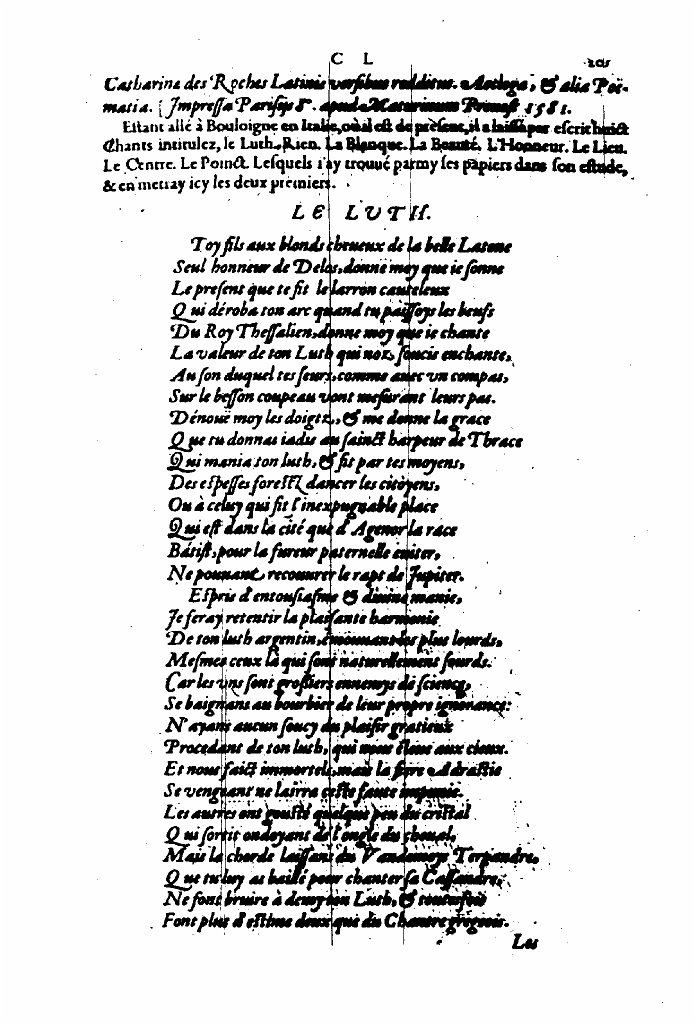 C L
205
Catharina des Roches Latinis versibus redditus. & alia Poë-
matia. Impressa Parisijs 8. apud Maturinum Preuost 1581.
Estant allé à Bouloigne en Italie, où il est de present, il a laissé par escrit huict
Chants intitulez, le Luth. Rien. La Blanque. La Beauté. L'Honneur. Le Lieu.
Le Centre. Le Poinct. Lesquels i'ay trouué parmy ses papiers dans son estude,
& en mettray icy les deux premiers.
LE LUTH.
Toy fils aux blonds cheueux de la belle Latone
Seul honneur de Delos, donne moy que ie sonne
Le present que te fit le larron cauteleux
Qui déroba ton arc quand tu paissoys les beufs
Du Roy Thessalien, donne moy que ie chante
La valeur de ton Luth qui noz soucis enchante,
Au son duquel tes seurs, comme auec vn compas,
Sur le besson coupeau vont mesurant leurs pas.
Dénouë moy les doigtz, & me donne la grace
Que tu donnas iadis au sainct harpeur de Thrace
Qui mania ton luth, & fit par tes moyens,
Des espesses forestz dancer les citoyens,
Ou à celuy qui fit l'inexpugnable place
Qui est dans la cité que d'Agenor la race
Bâtist, pour la fureur paternelle euiter,
Ne pouuant recouurer le rapt de Jupiter.
Espris d'entousiasme & diuine manie,
Je feray retentir la plaisante harmonie
De ton luth argentin, émouuant les plus lourds,
Mesmes ceux là qui sont naturellement sourds.
Car les vns sont grossiers ennemys de science,
Se baignans au bourbier de leur propre ignorance:
N'ayans aucun soucy du plaisir gratieux
Procedant de ton luth, qui nous éleue aux cieux.
Et nous faict immortels, mais la fiere Adrastie
Se vengeant ne lairra ceste faute impunie.
Les autres ont gousté quelque peu du cristal
Qui sortit ondoyant de l'ongle du cheual,
Mais la chorde laissans du Vandomoys Terpandre,
Que tu luy as baillé pour chanter sa Cassandre,
Ne font bruire à demy ton Luth, & toutesfois
Font plus d'estime deux que du Chantre gregeois.
Les